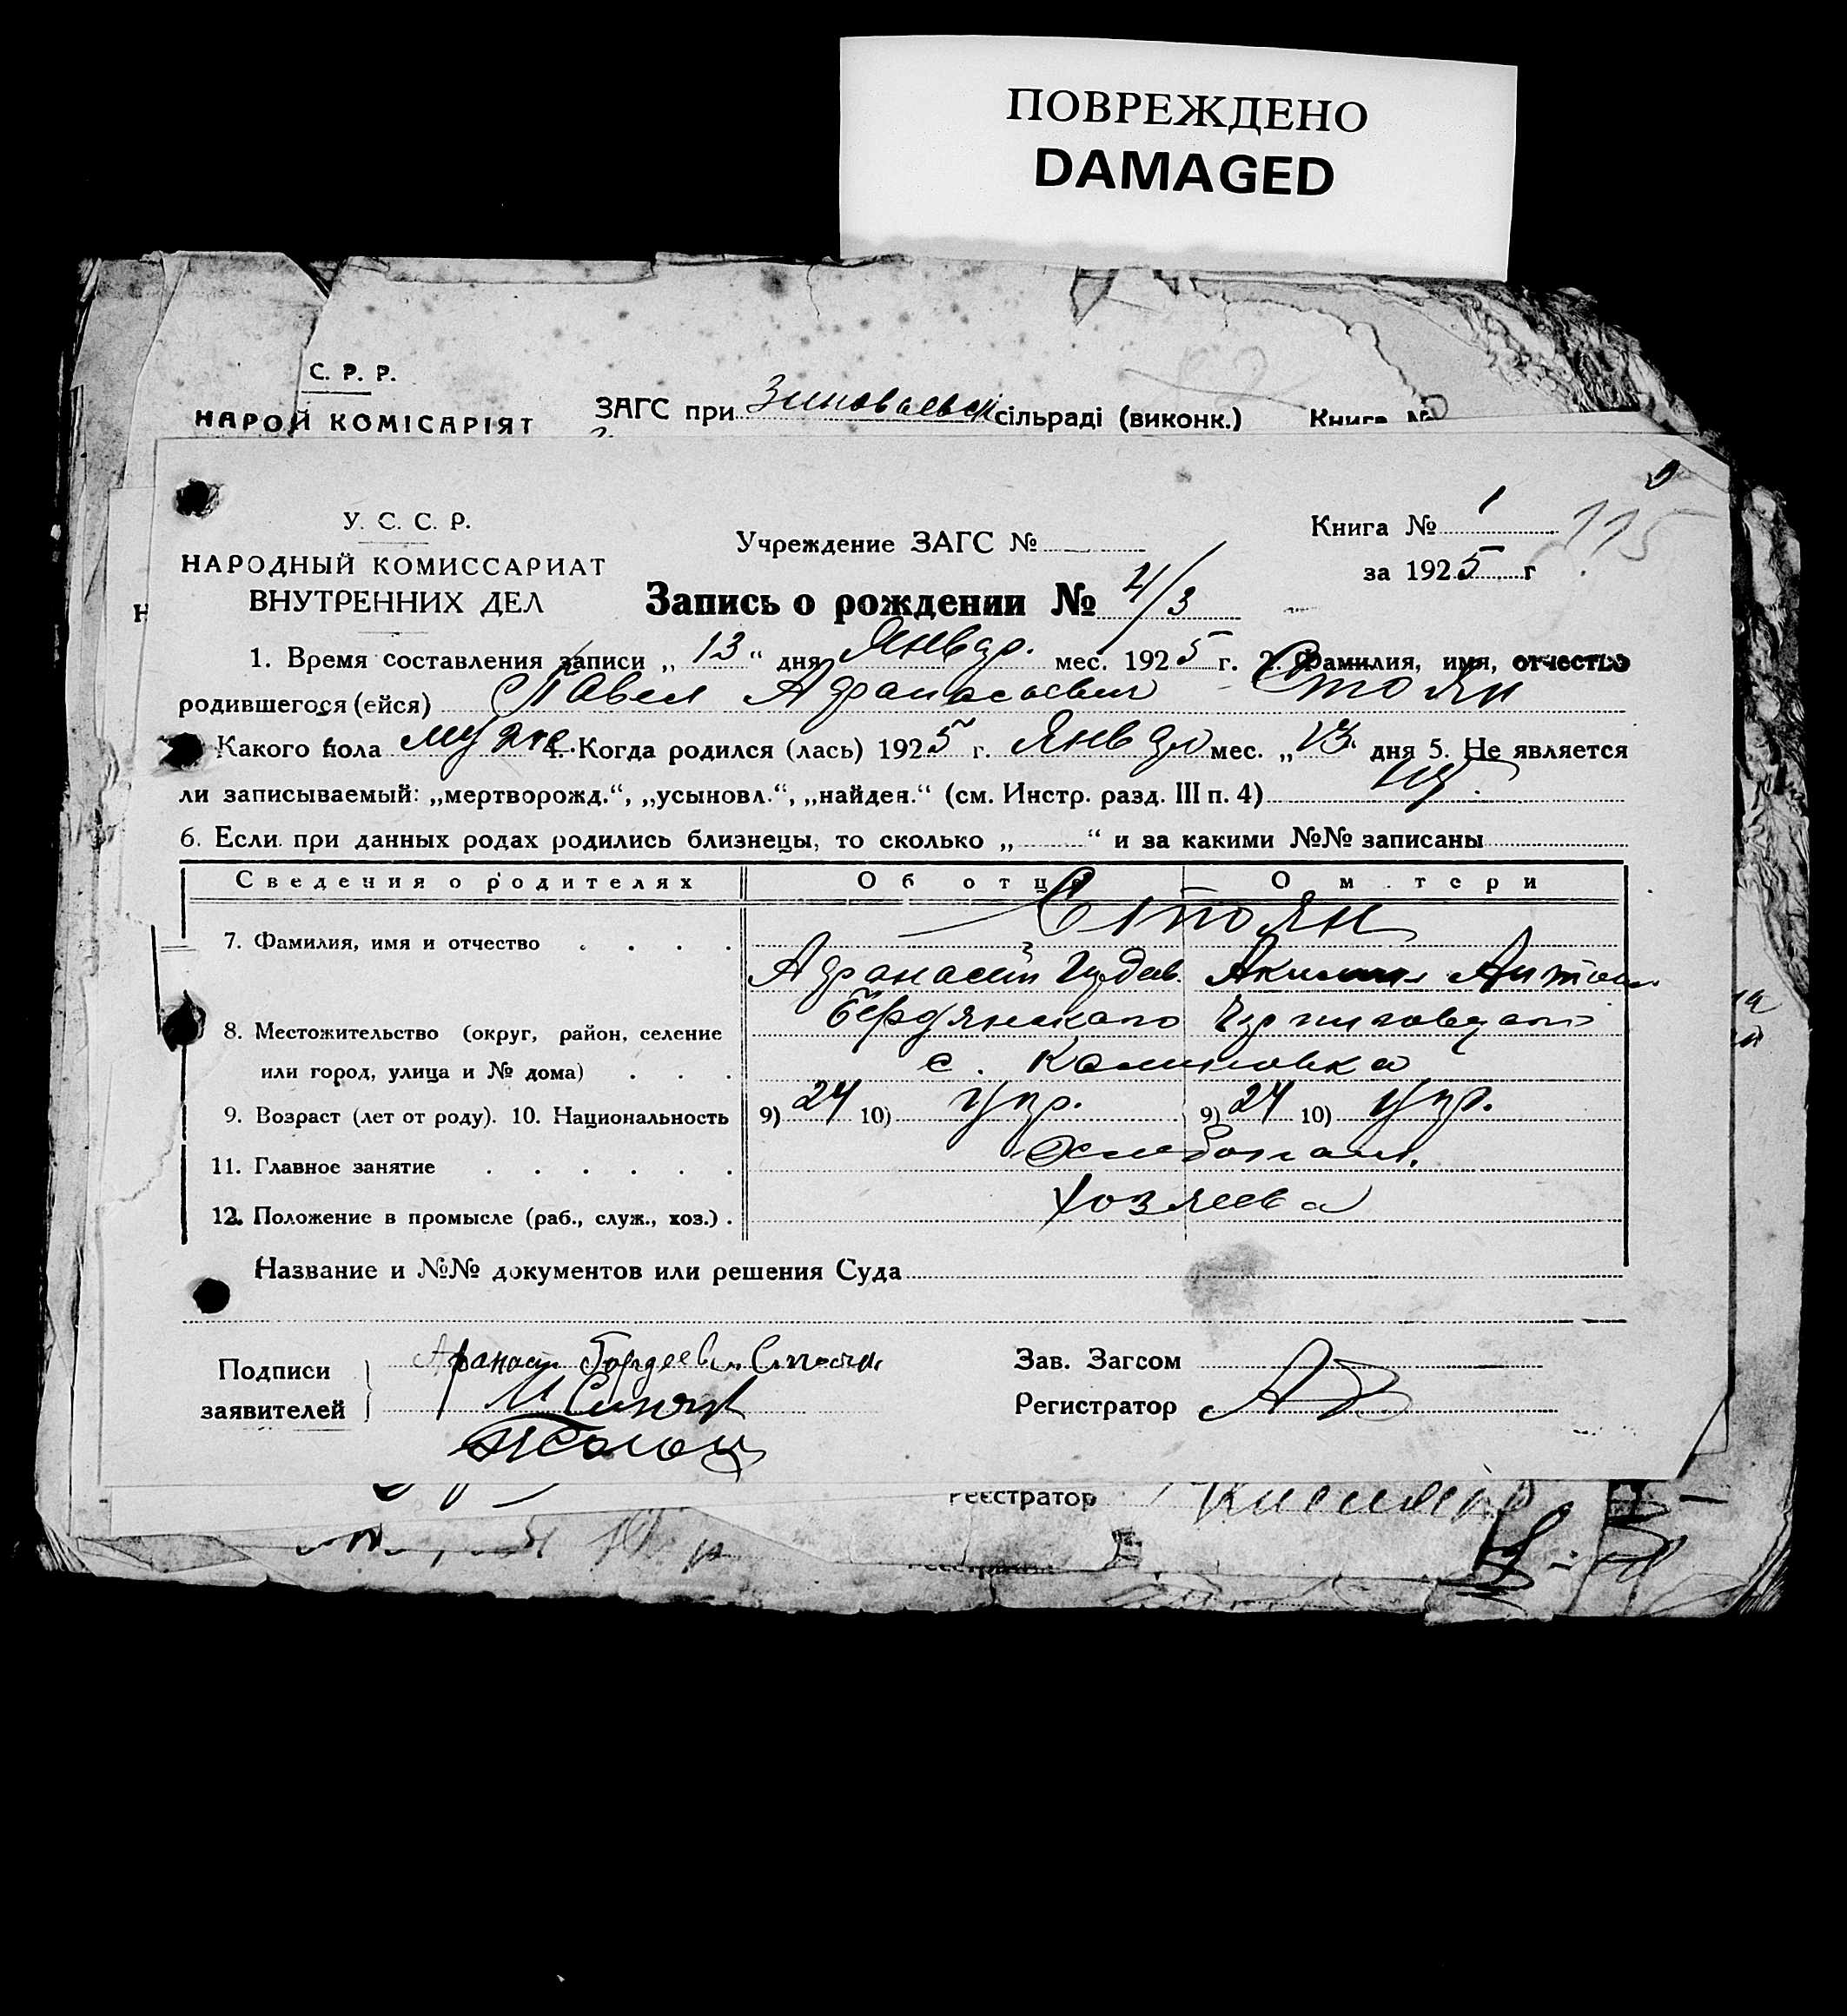 ПОВРЕЖДЕНО
DAMAGED
С. Р. Р.
НАРОЙ КОМІСАРІЯТ
ЗАГС при Зиновьевск сільраді (виконк.) Книга №
У. С. С. Р.
НАРОДНЫЙ КОМИССАРИАТ
ВНУТРЕННИХ ДЕЛ
Учреждение ЗАГС №
Книга № 1
115
за 1925 г
Запись о рождении № 4/3
1. Время составления записи „ 13 “ дня Январ. мес. 1925 г. 2. Фамилия, имя, отчество
родившегося (ейся) Павел Афанасьевич Стоян
Какого пола муж. 4. Когда родился (лась) 1925 г. Январ мес. „ 13 дня 5. Не является
ли записываемый: „мертворожд.“, „усыновл.“, „найден.“ (см. Инстр. разд. III п. 4)
6. Если при данных родах родились близнецы, то сколько „ “ и за какими №№ записаны
Сведения о родителях Об отце О м тери
7. Фамилия, имя и отчество Стоян
Афанасий Акилина Антон
8. Местожительство (округ, район, селение Бердянского Черниговского
или город, улица и № дома) с. Калиновка
9. Возраст (лет от роду). 10. Национальность 9) 24 10) Укр. 9) 24 10) Укр.
11. Главное занятие Хлебопаш.
12. Положение в промысле (раб., служ., хоз.) Хозяева
Название и №№ документов или решения Суда
Подписи Афанасий Гордеевич Стоян
заявителей
Зав. Загсом
Регистратор
Реєстратор